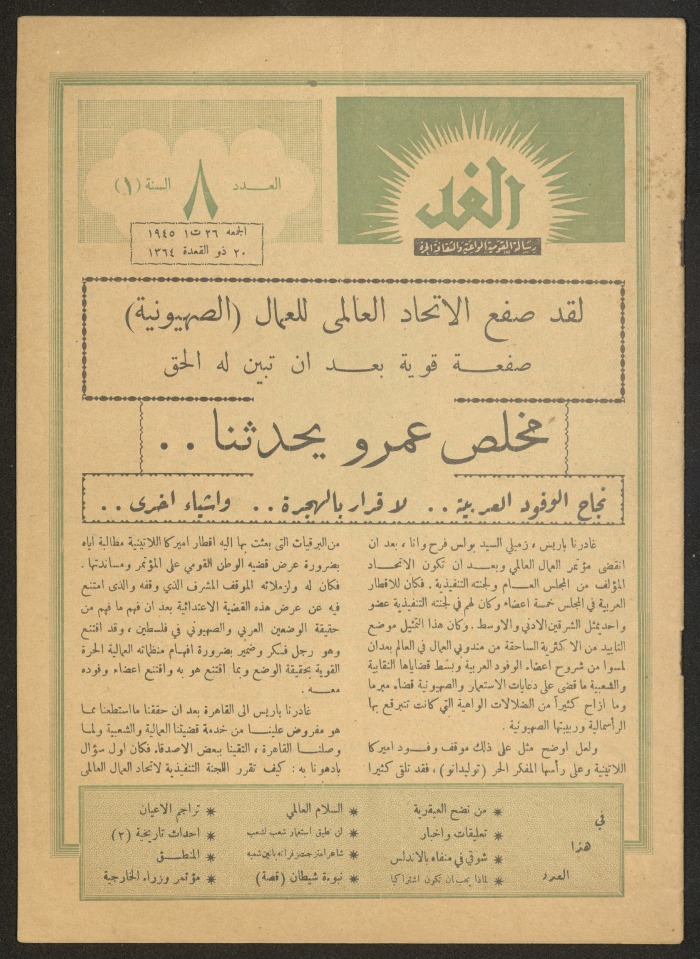 الغد
رسالة القومية الواعية والثقافة الحرة
العدد ٨ السنة (١)
الجمعه ٢٦ ت١ ١٩٤٥
٢٠ ذو القعدة ١٣٦٤
لقد صفع الاتحاد العالمى للعمال (الصهيونية)
صفعة قوية بعد ان تبين له الحق
مخلص عمرو يحدثنا . .
نجاح الوفود العربية . . لا قرار بالهجرة . . واشياء اخرى . .
غادرنا باريس ، زميلي السيد بولس فرح وانا ، بعد ان
انقضى مؤتمر العمال العالمي وبعد ان تكون الاتحاد
المؤلف من المجلس العام ولجنته التنفيذية . فكان للاقطار
العربية في المجلس خمسة اعضاء وكان لهم في لجنته التنفيذية عضو
واحد يمثل الشرقين الادنى والاوسط . وكان هذا التمثيل موضع
التاييد من الاكثرية الساحقة من مندوبي العمال في العالم بعد ان
لمسوا من شروح اعضاء الوفود العربية وبسط قضاياها النقابية
والشعبية ما قضى على دعايات الاستعمار والصهيونية قضاء مبرما
وما ازاح كثيراً من الضلالات الواهية التي كانت تتبرقع بها
الرأسمالية وربيبتها الصهيونية .
ولعل اوضح مثل على ذلك موقف وفود اميركا
اللاتينية وعلى رأسها المفكر الحر (توليدانو) ، فقد تلقى كثيرا
من البرقيات التى بعثت بها اليه اقطار اميركا اللاتينية مطالبة اياه
بضرورة عرض قضيه الوطن القومي على المؤتمر ومساندتها .
فكان له ولزملائه الموقف المشرف الذي وقفه والذى امتنع
فيه عن عرض هذه القضية الاعتدائية بعد ان فهم ما فهم من
حقيقة الوضعين العربي والصهيوني في فلسطين ، وقد اقتنع
وهو رجل فكر وضمير بضرورة افهام منظماته العمالية الحرة
القوية بحقيقة الوضع وبما اقتنع هو به واقتنع اعضاء وفوده
معه .
غادرنا باريس الى القاهرة بعد ان حققنا ما استطعنا مما
هو مفروض علينا من خدمة قضيتنا العمالية والشعبية ولما
وصلنا القاهرة ، التقينا ببعض الاصدقاء فكان اول سؤال
بادهونا به : كيف تقرر اللجنة التنفيذية لاتحاد العمال العالمى
في
هذا
العدد
* من نضح العبقرية
* تعليقات واخبار
* شوقي في منفاه بالاندلس
* لماذا يجب ان تكون اشتراكيا
* السلام العالمي
* لن نطيق استعمار شعب لشعب
* نبوءة شيطان (قصة)
* تراجم الاعيان
* احداث تاريخية (٢)
* المنطق
* مؤتمر وزراء الخارجية